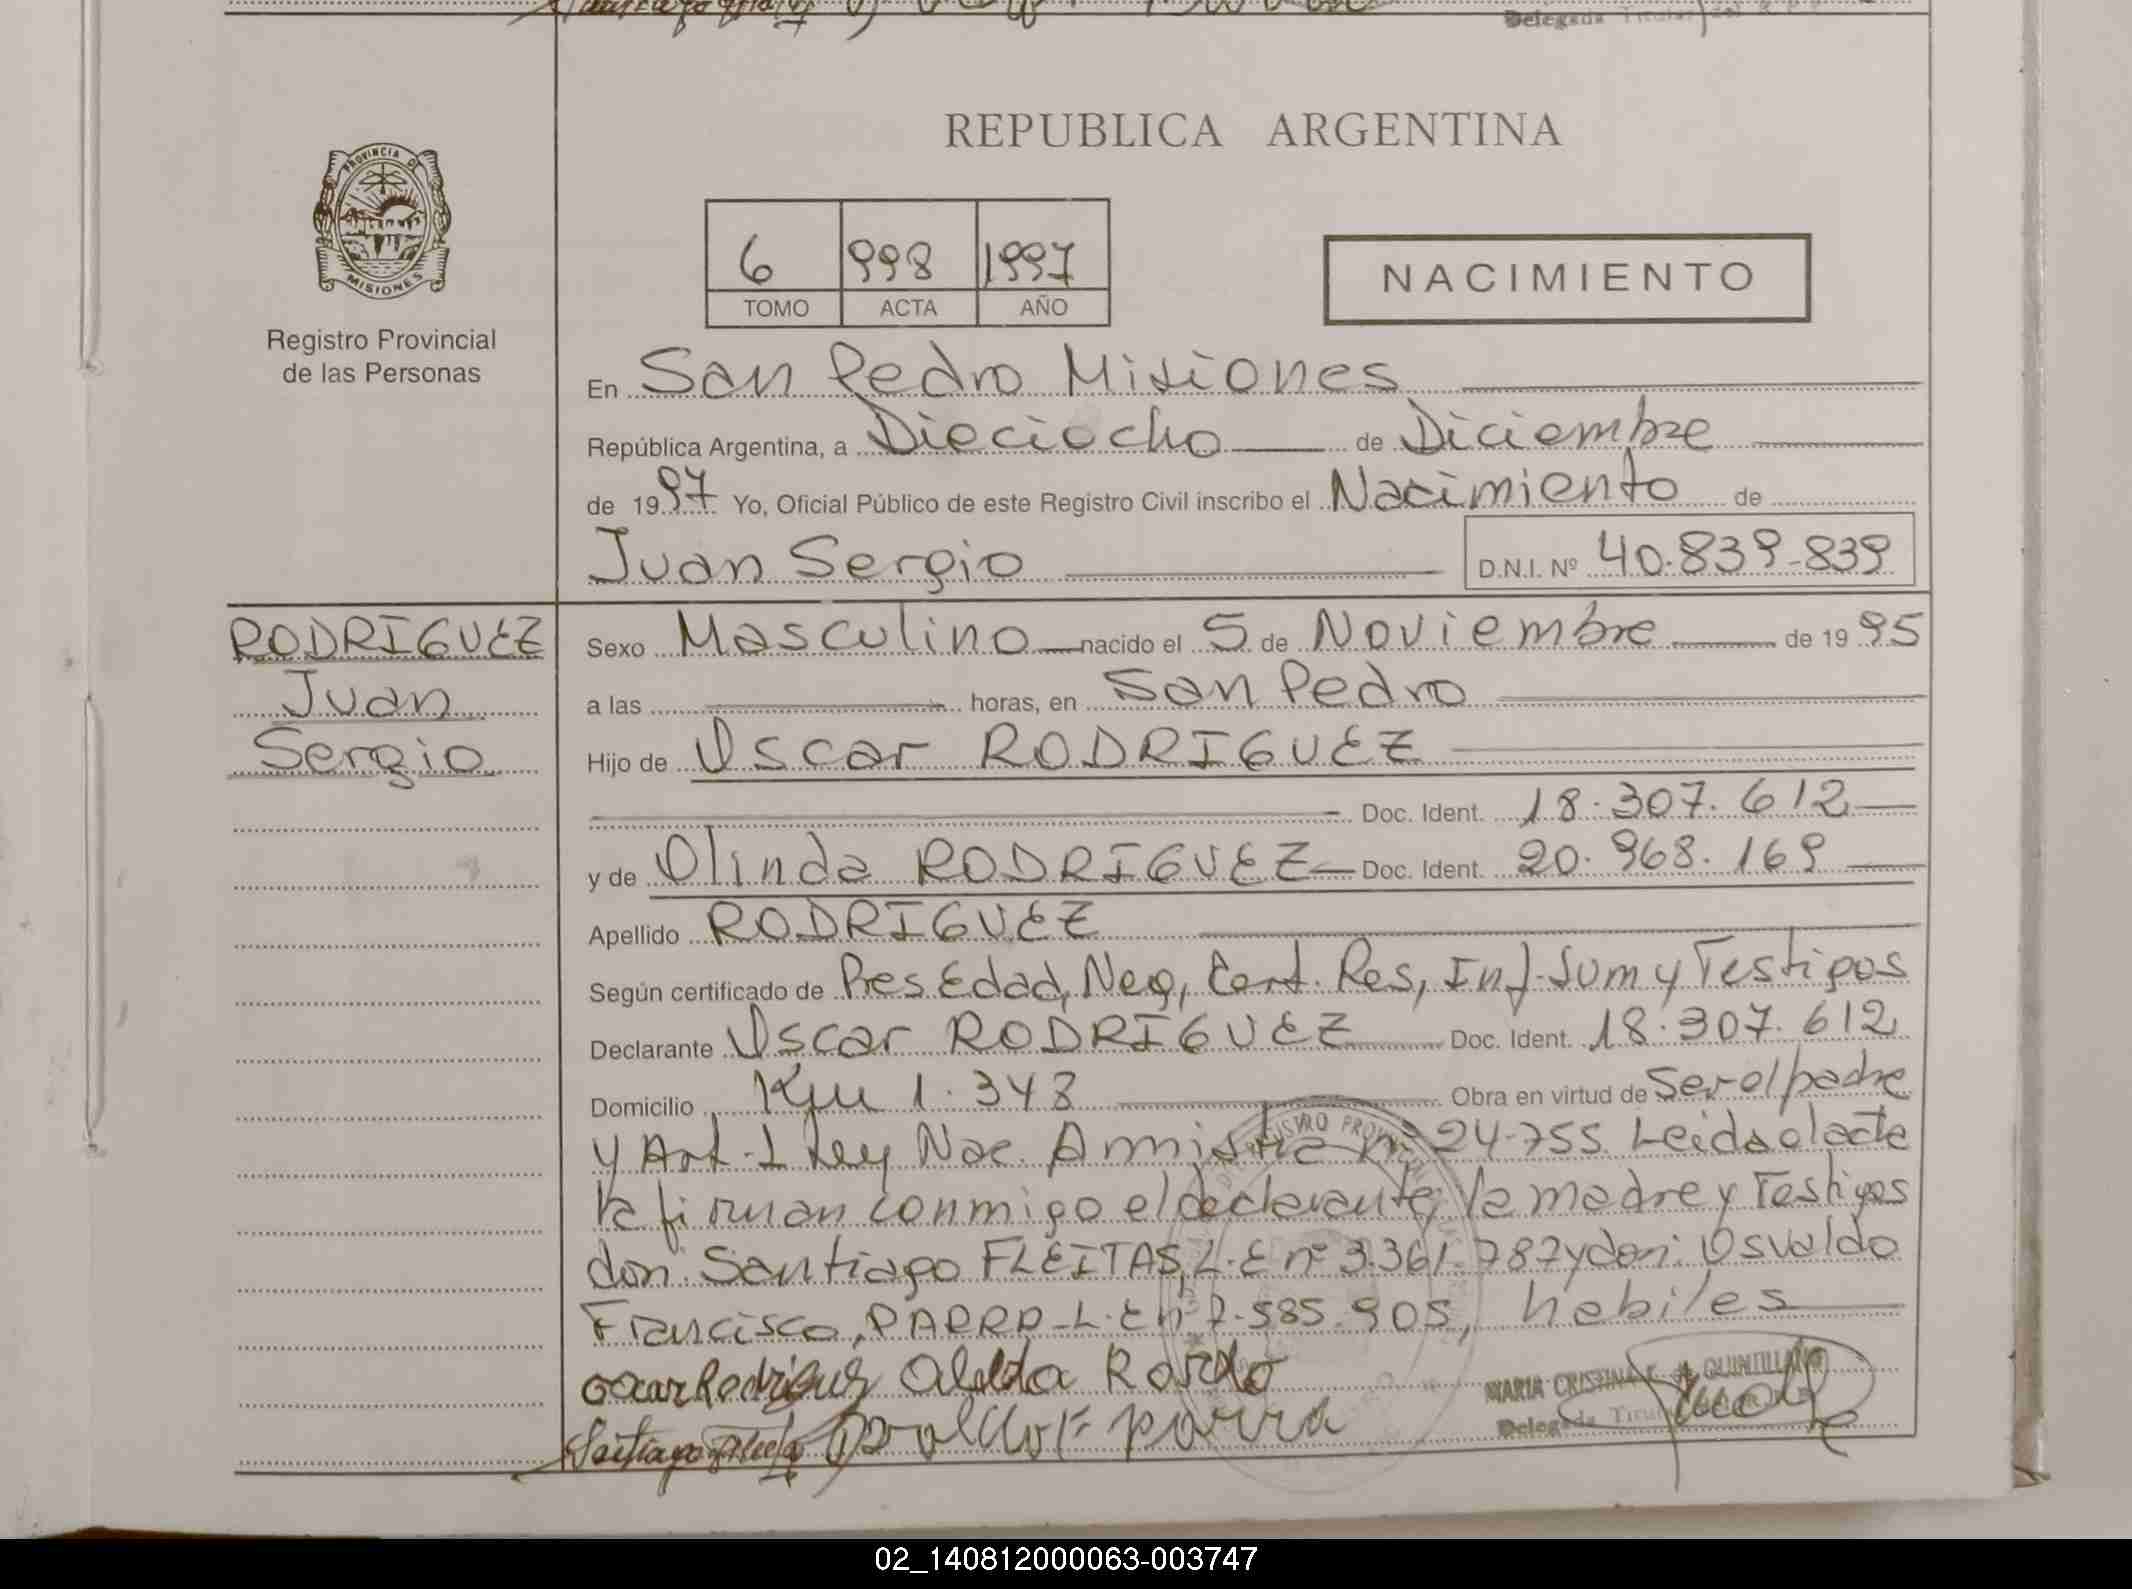 Delegada Titular del R.P.P.
PROVINCIA DE
MISIONES
Registro Provincial
de las Personas
REPUBLICA ARGENTINA
6 998 1997
TOMO ACTA AÑO
NACIMIENTO
En San Pedro Misiones
República Argentina, a Dieciocho de Diciembre
de 1997 Yo, Oficial Público de este Registro Civil inscribo el Nacimiento de
Juan Sergio D.N.I. Nº 40.839-839
RODRIGUEZ
Juan
Sergio
Sexo Masculino nacido el 5 de Noviembre de 1995
a las horas, en San Pedro
Hijo de Oscar RODRIGUEZ
Doc. Ident. 18.307.612
y de Olinda RODRIGUEZ Doc. Ident. 20.968.169
Apellido RODRIGUEZ
Según certificado de Pres. Edad, Neg, Cert. Res, Inf. Sum y Testigos
Declarante Oscar RODRIGUEZ Doc. Ident. 18.307.612
Domicilio Km 1.343 Obra en virtud de Ser el padre
y Art. 1 Ley Nac. Amnistia nº 24-755. Leida el acta
la firman conmigo el declarante, la madre y Testigos
don: Santiago FLEITAS, L.E nº 3.361.787 y don: Osvaldo
Francisco, PARRA - L.E nº 7.585.905, habiles
oscar Rodriguez
Santiago Osvaldo F parra
MARIA CRISTINA F. de QUINTILLANO
Delegada Titular
02_140812000063-003747